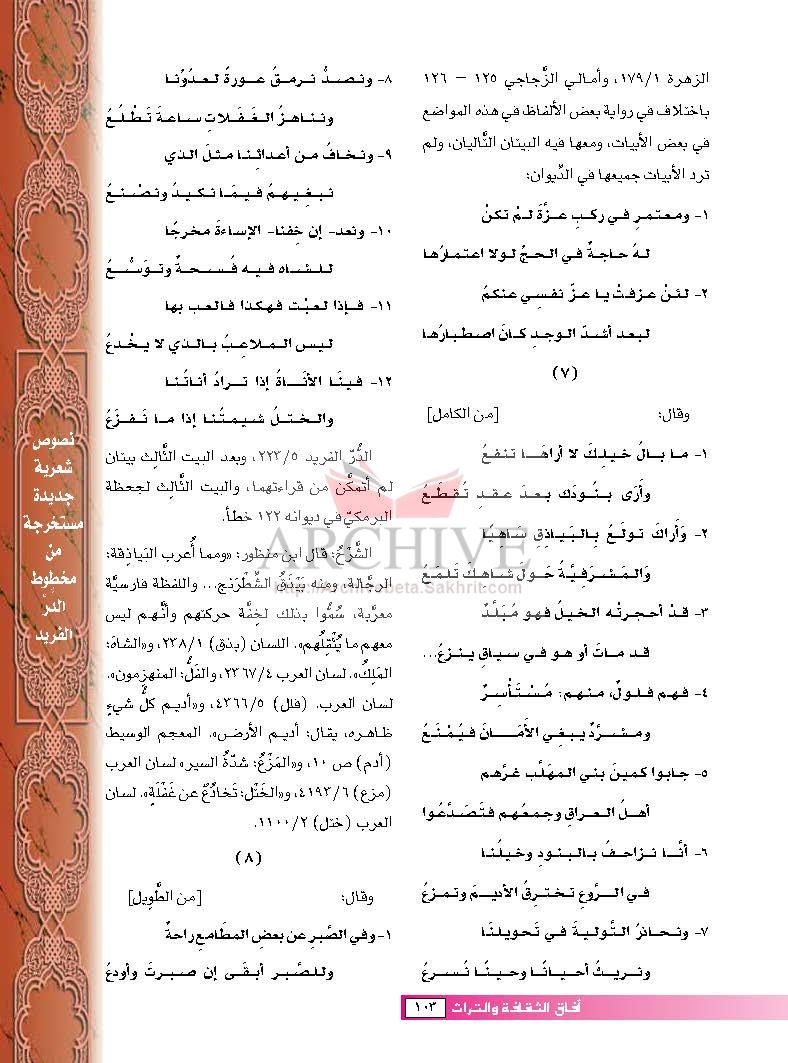 الزهرة ١٧٩/١، وأمالي الزَّجاجي ١٢٥ – ١٢٦
باختلاف في رواية بعض الألفاظ، في هذه المواضع
في بعض الأبيات، ومعها فيه البيتان التَّاليان، ولم
ترد الأبيات جميعها في الدِّيوان:
١- ومعتمرٍ في ركبِ عزَّةَ لمْ تكنْ
لهُ حاجةٌ في الحجِّ لولا اعتمارُها
٢- لئنْ عزفتْ يا عزّ نفسِي عنكمُ
لبعد أشدّ الوجدِ كانَ اصطبارُها
(٧)
وقال: [من الكامل]
١- ما بالُ خيلِكَ لا أراهَا تنفعُ
وأَرَى بنُودَك بعدَ عقدٍ تُقطَعُ
٢- وَأَراكَ تولَعُ بِالبَيَاذِقِ سَاهِيًا
وَالمَسْرَفِيَّةُ حَوْلَ شاهكَ تَلْمَعُ
٣- قدْ أحجرتْه الخيلُ فهو مُبَلَّدٌ
قد ماتَ أو هو في سياقٍ ينزعُ...
٤- فهم فلولٌ، منهم: مُسْتَأْسِرٌ
ومشرَّدٌ يبغِي الأمَانَ فيُمْنَعُ
٥- جابوا كمينَ بني المهَلَّب غرَّهم
أهلُ العراقِ وجمعُهم فتَصَدَّعُوا
٦- أنَّا نزاحفُ بالبنودِ وخيلُنا
في الرَّوعِ تخترقُ الأديمَ وتمزعُ
٧- ونحاذرُ التَّوليةَ في تَحويلنَا
ونريثُ أحيانًا وحينًا نُسرعُ
٨- ونصدُّ نرمقُ عورةً لعدوِّنا
ونناهزُ الغَفَلاتِ ساعةَ تَطْلُعُ
٩- ونخافُ من أعدائِنا مثلَ الذي
نبغِيهمُ فيمَا نكيدُ ونصْنعُ
١٠- ونعد- إن خِفنا- الإساءةَ مخرجًا
للشاه فيه فُسحةٌ وتوَسُّعُ
١١- فإذا لعبْت فهكذا فالعب بها
ليس الملاعِبُ بالذي لا يخْدعُ
١٢- فينَا الأناةُ إذا ترادُ أناتُنا
والختلُ شيمتُنا إذا ما نَفزَعُ
الدُّرّ الفريد ٢٢٣/٥، وبعد البيت الثَّالث بيتان
لم أتمكَّن من قراءتهما، والبيت الثَّالث لجحظة
البرمكيّ في ديوانه ١٢٢ خطأ.
الشَّرْحُ: قال ابن منظور: «ومما أُعرب البَياذِقة:
الرجّالة، ومنه بَيْذَقُ الشِّطْرَنج... واللفظة فارسيَّة
معرَّبة، سُمُّوا بذلك لخِفَّة حركتهم وأنَّهم ليس
معهم ما يُثْقِلُهم». اللسان (بذق) ٢٣٨/١، و«الشاهَ:
المَلِكُ». لسان العرب ٢٣٦٧/٤، والفَلُّ: المنهزمون».
لسان العرب. (فلل) ٤٣٦٦/٥، و«أديم كلُّ شيءٍ
ظاهره، يقال: أديم الأرض». المعجم الوسيط،
(أدم) ص ١٠، و«المَزْعُ: شدَّةُ السير» لسان العرب
(مزع) ٤١٩٣/٦، و«الخَتْل: تَخادُعٌ عن غَفْلَةٍ». لسان
العرب (ختل) ١١٠٠/٢.
(٨)
وقال: [من الطَّويل]
١- وفي الصَّبرِ عن بعضِ المطَامعِ راحةٌ
وللصَّبر أبقَى إن صبرتَ وأودعُ
نصوص
شعرية
جديدة
مستخرجة
من
مخطوط
الدرّ
الفريد
ARCHIVE
http://Archivebeta.Sakhrit.com
آفاق الثقافة والتراث ١٠٣